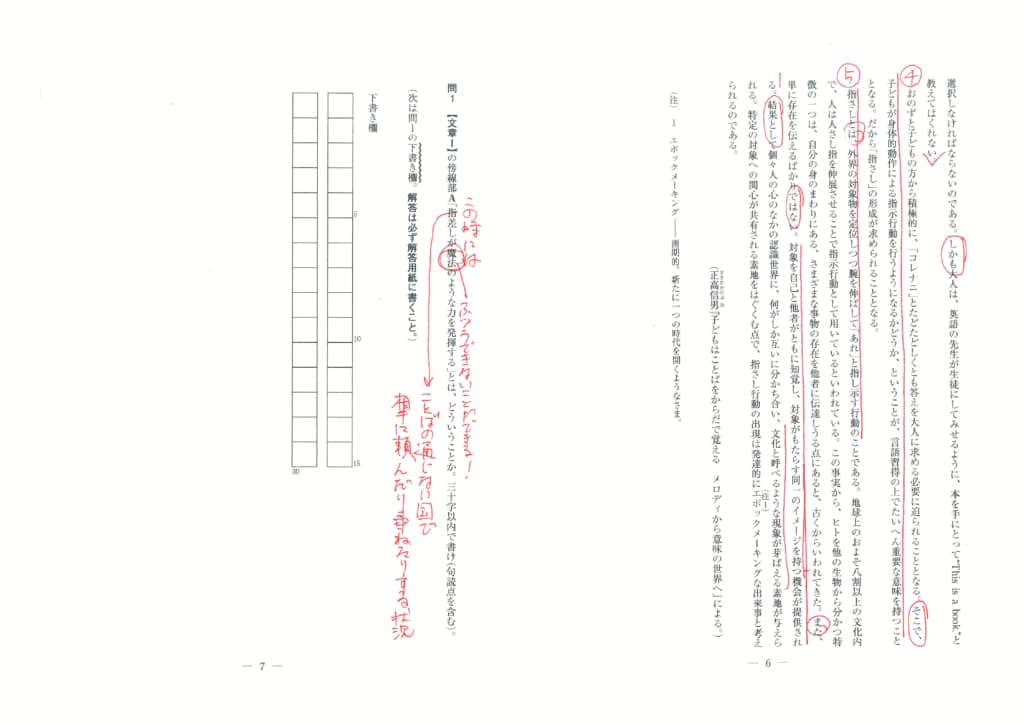 選択しなければならないのである。しかも大人は、英語の先生が生徒にしてみせるように、本を手にとって“This is a book.”と
教えてはくれない。
④
おのずと子どもの方から積極的に、「コレナニ」とたどたどしくとも答えを大人に求める必要に迫られることとなる。そこで、
子どもが身体的動作による指示行動を行うようになるかどうか、ということが、言語習得の上でたいへん重要な意味を持つこと
となる。だから「指さし」の形成が求められることとなる。
⑤
指さしとは、外界の対象物を定位しつつ腕を伸ばして「あれ」と指し示す行動のことである。地球上のおよそ八割以上の文化内
で、人は人さし指を伸展させることで指示行動として用いているといわれている。この事実から、ヒトを他の生物から分かつ特
徴の一つは、自分の身のまわりにある、さまざまな事物の存在を他者に伝達しうる点にあると、古くからいわれてきた。また、
単に存在を伝えるばかりではない。対象を自己と他者がともに知覚し、対象がもたらす同一のイメージを持つ機会が提供され
る。結果として個々人の心のなかの認識世界に、何がしか互いに分かち合い、文化と呼べるような現象が芽ばえる素地が与えら
れる。特定の対象への関心が共有される素地をはぐくむ点で、指さし行動の出現は発達的にエポックメーキングな出来事と考え
(注1)
られるのである。
(正高信男『子どもはことばをからだで覚える　メロディから意味の世界へ』による。)
まさたかのぶお
(注)　1　エポックメーキング――画期的。新たに一つの時代を開くようなさま。
― 6 ―
問1　【文章Ⅰ】の傍線部A「指差しが魔法のような力を発揮する」とは、どういうことか。三十字以内で書け(句読点を含む)。
この時には
ふつうできないことができる！
ことばの通じない国で
相手に頼んだり尋ねたりする状況
(次は問1の下書き欄。解答は必ず解答用紙に書くこと。)
下書き欄
5
10
15
30
― 7 ―